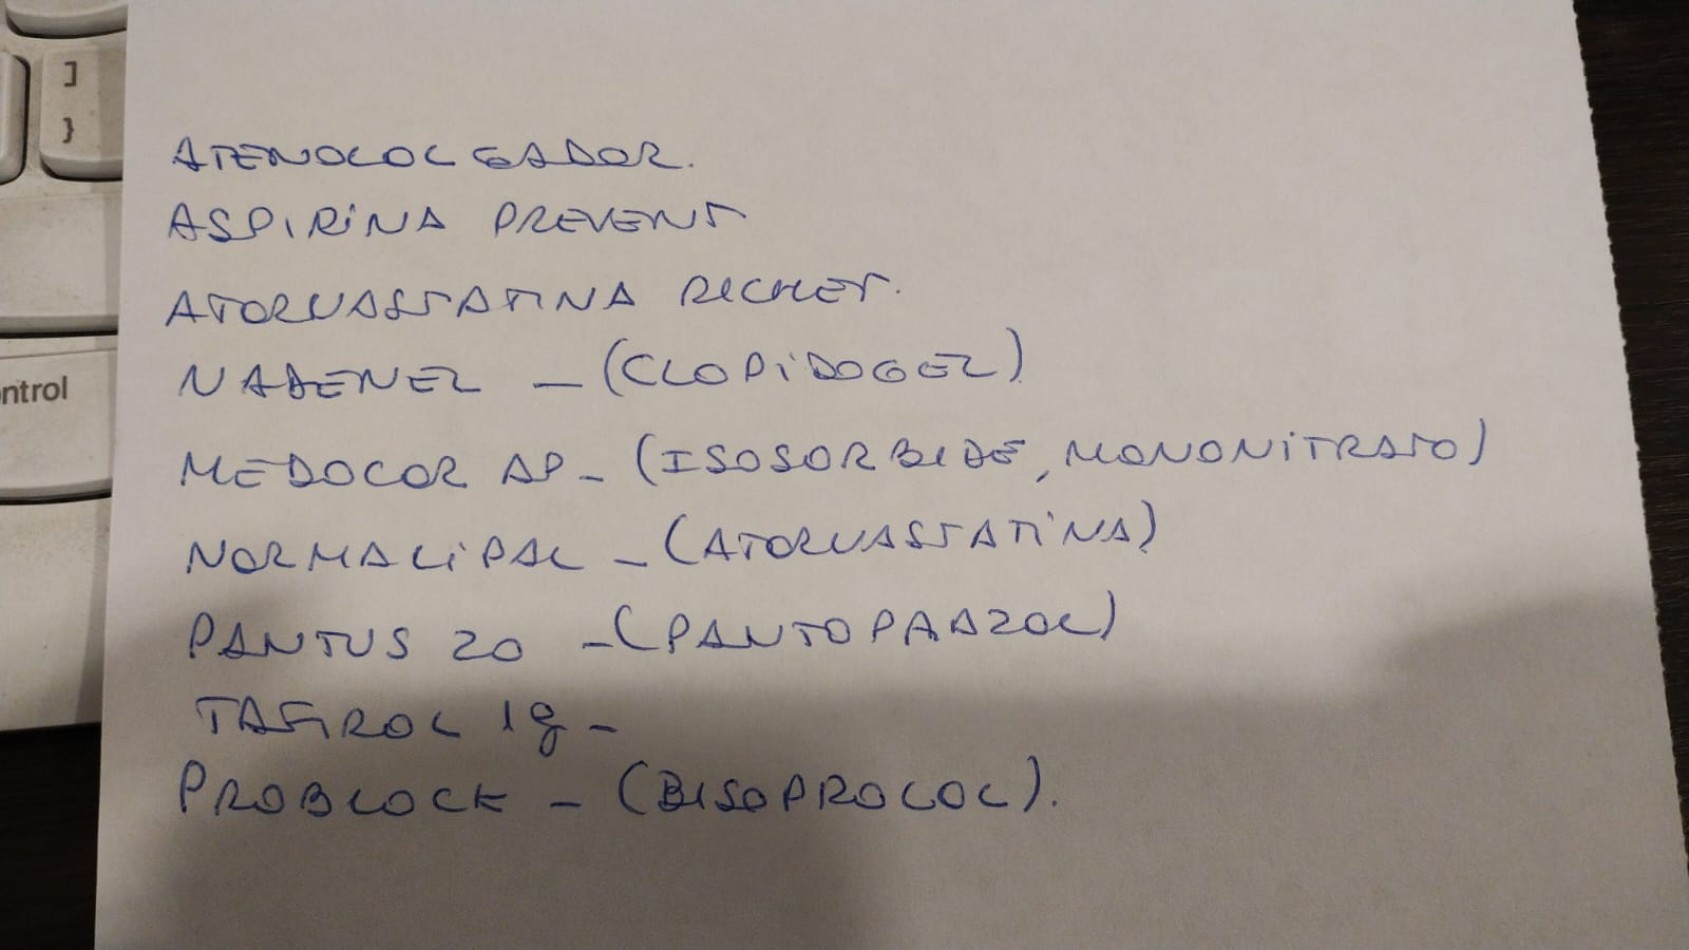 ]
}
ntrol
ATENOLOL GADOR.
ASPIRINA PREVENT
ATORVASTATINA RICHET.
NABENEL - (CLOPIDOGEL)
MEDOCOR AP - (ISOSORBIDE, MONONITRATO)
NORMALIPAL - (ATORVASTATINA)
PANTUS 20 - (PANTOPAAZOL)
TAFIROL 1g -
PROBLOCK - (BISOPROLOL).